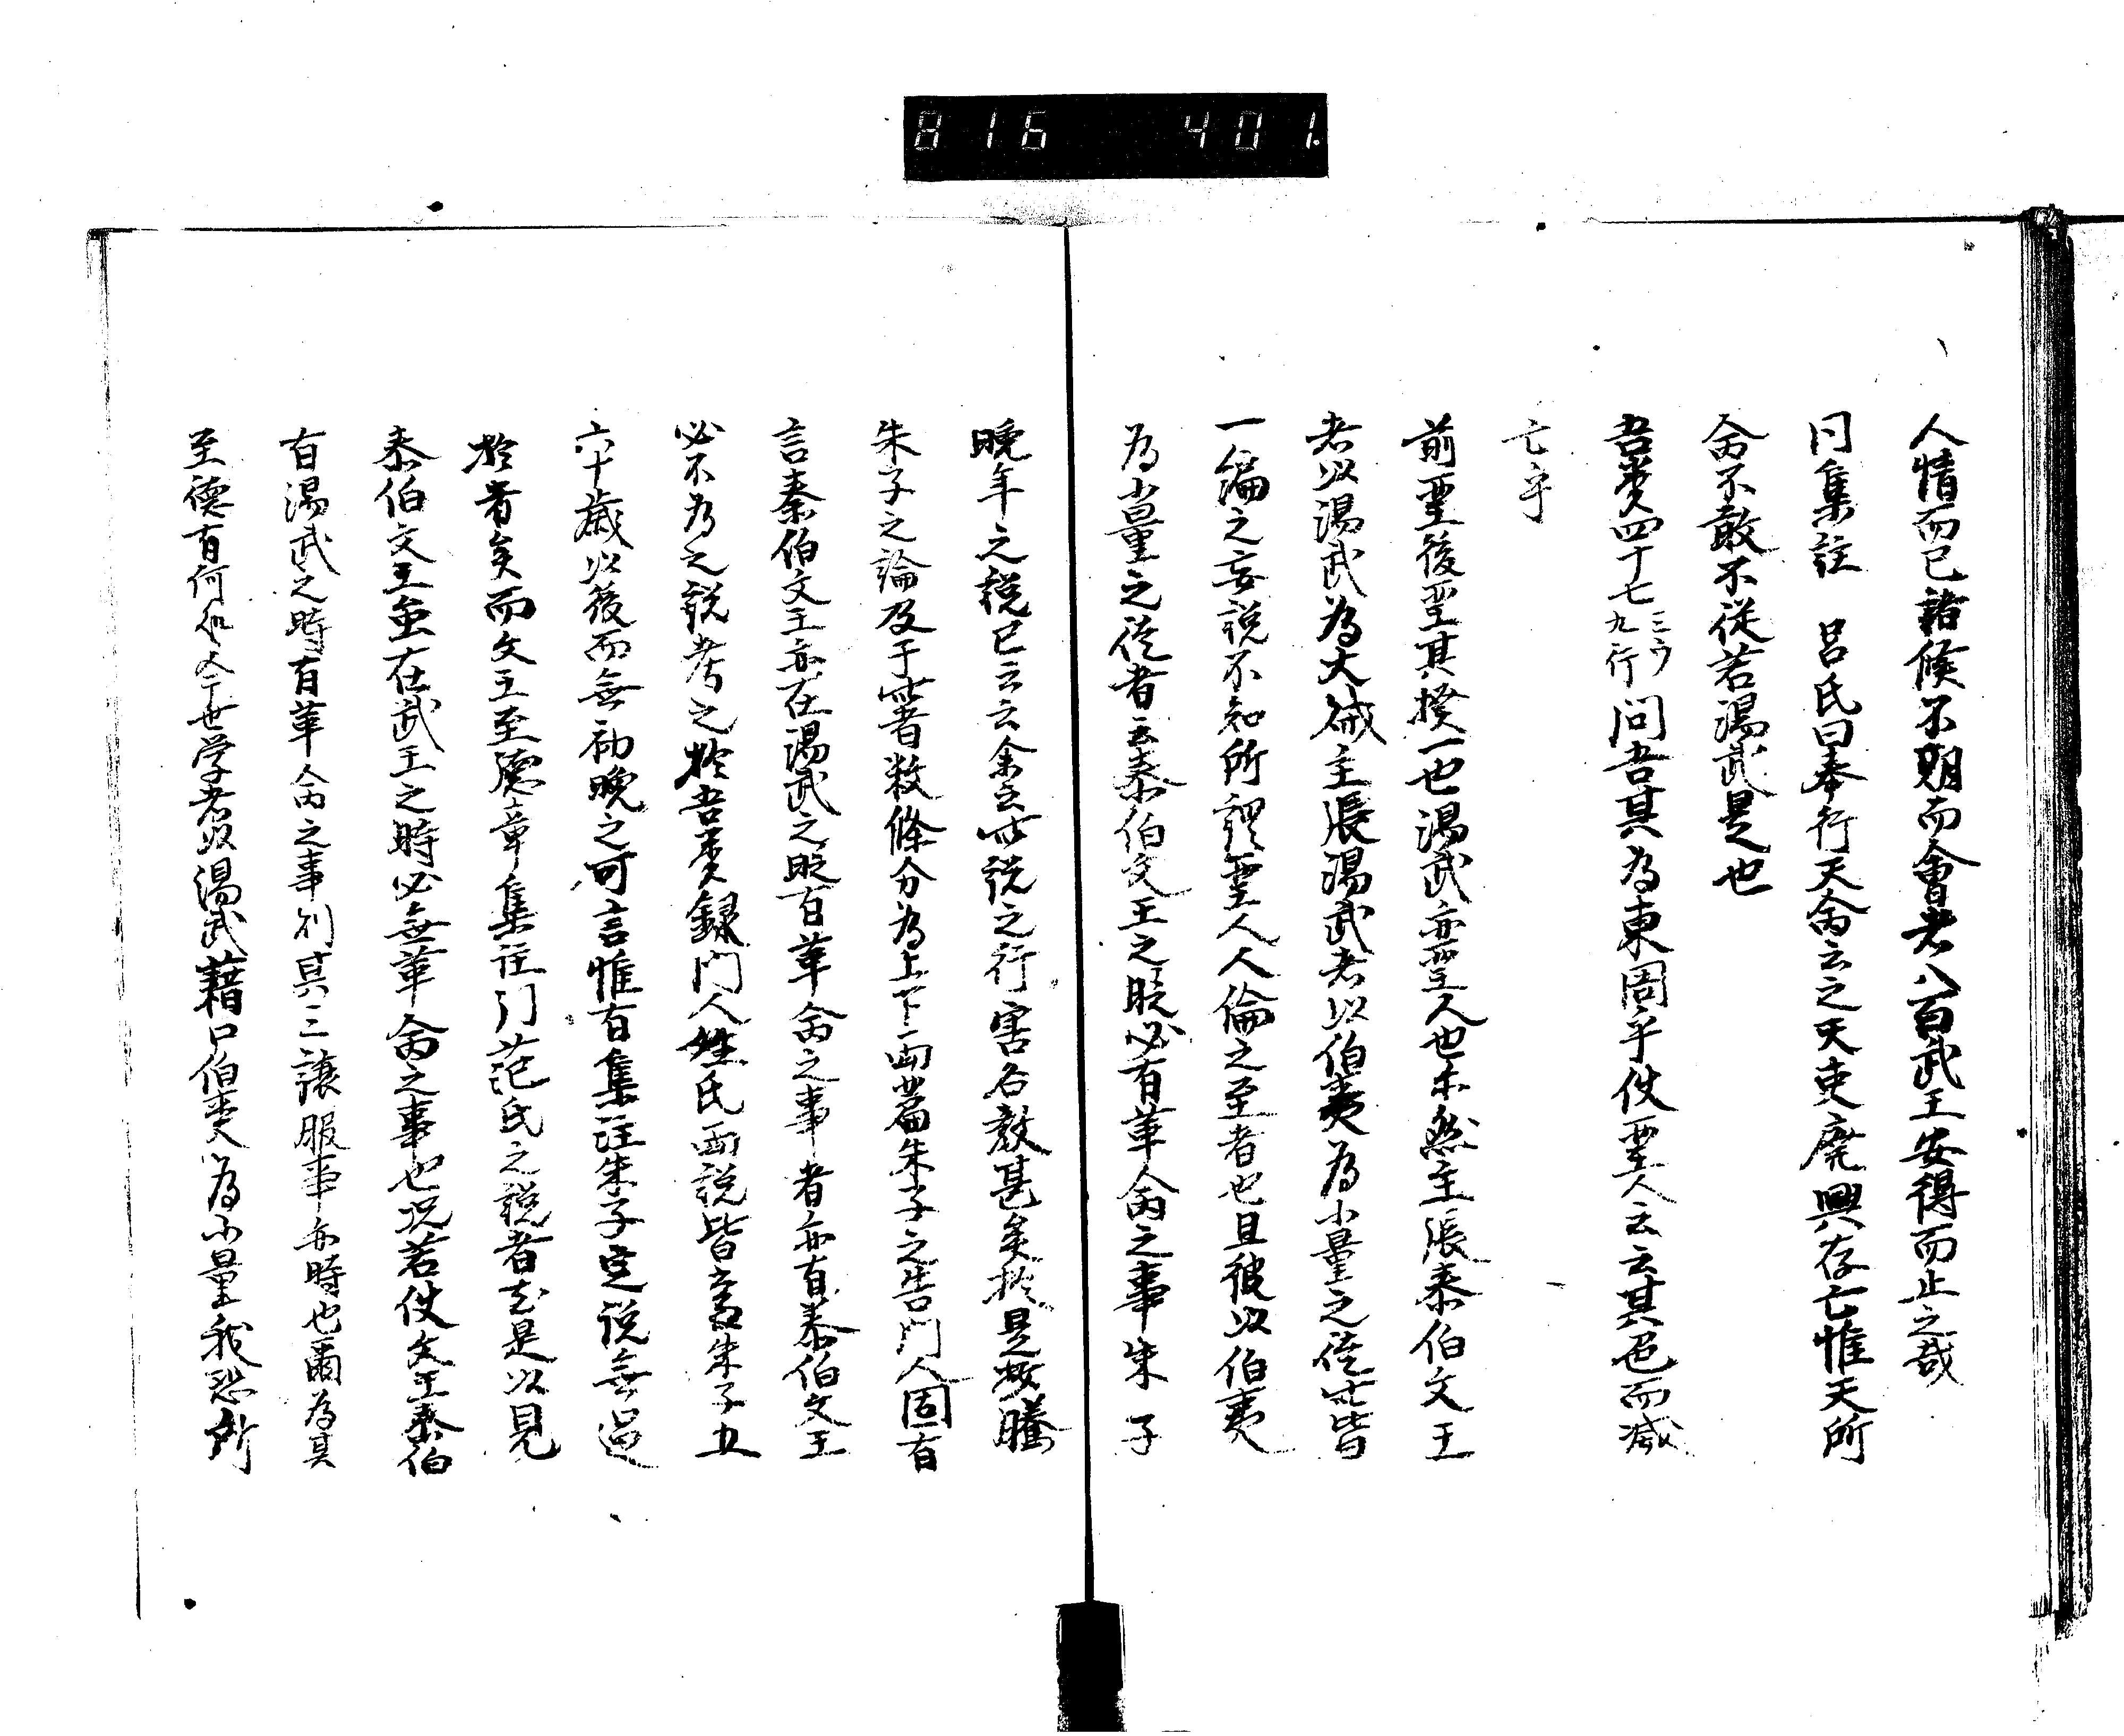 816 401.
人情而已諸侯不期而會者八百武王安得而止之哉
同集註 呂氏曰奉行天命云之天吏廃興存亡惟天所
命不敢不従若湯武是也
吾黌四十七三ウ九行問吾其為東周乎使聖人云云其邑而滅
亡乎
前聖後聖其揆一也湯武亦聖人也不然主張泰伯文王
者以湯武為大賊主張湯武者以伯夷為小量之従此皆
一偏之妄説不知所謂聖人人倫之至者也且彼以伯夷
為小量之従者云泰伯文王之時必有革命之事朱子
晩年之説已云云余云此説之行害名教甚矣於是按騰
朱子之論及于此者数條分為上下両篇朱子之告門人固有
言泰伯文王亦在湯武之時有革命之事者亦有泰伯文王
必不為之説考之於吾黌録門人姓氏両説皆朱子五
六十歳以後而無初晩之可言惟有集註朱子定説無過
於者矣而文王至徳章集註引范氏之説者於是以見
泰伯文王虽在武王之時必無革命之事也况若使文王泰伯
有湯武之時有革命之事則其三譲服事亦時也爾為其
至徳有何以今世学者以湯武藉口伯夷為小量我恐所